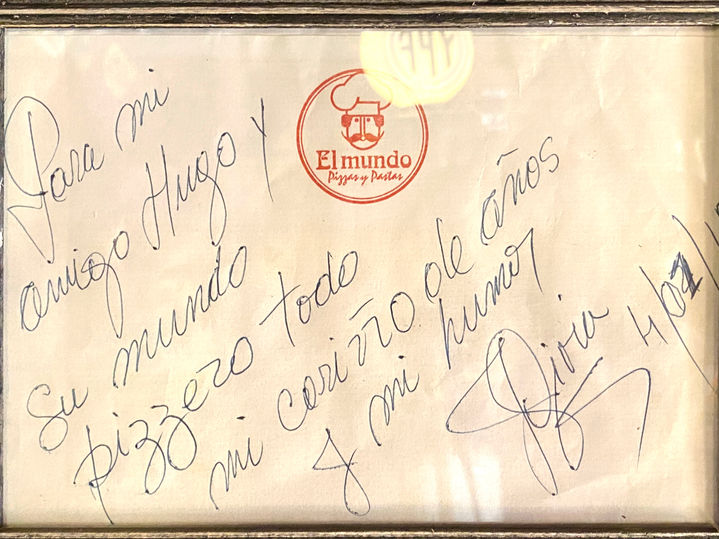 El mundo
Pizzas y Pastas
Para mi
amigo Hugo y
su mundo
pizzero todo
mi cariño de años
y mi humor